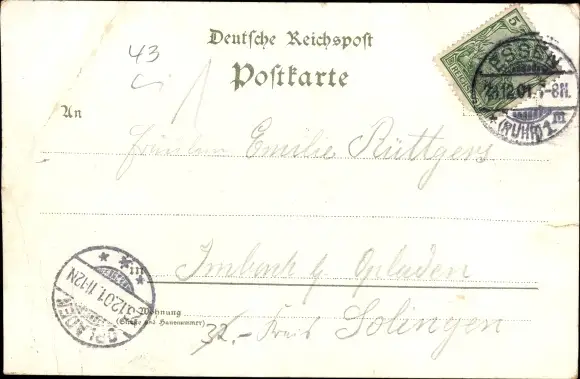 43
Deutsche Reichspost
Postkarte
5
ESSEN
12.01. 7-8N.
(RUHR) 1.m
An
Fräulein Emilie Rüttgers
in
Imbach b/ Opladen
12.01. 11-12N
OPLADEN
Wohnung
(Straße und Hausnummer)
32.- Kreis Solingen